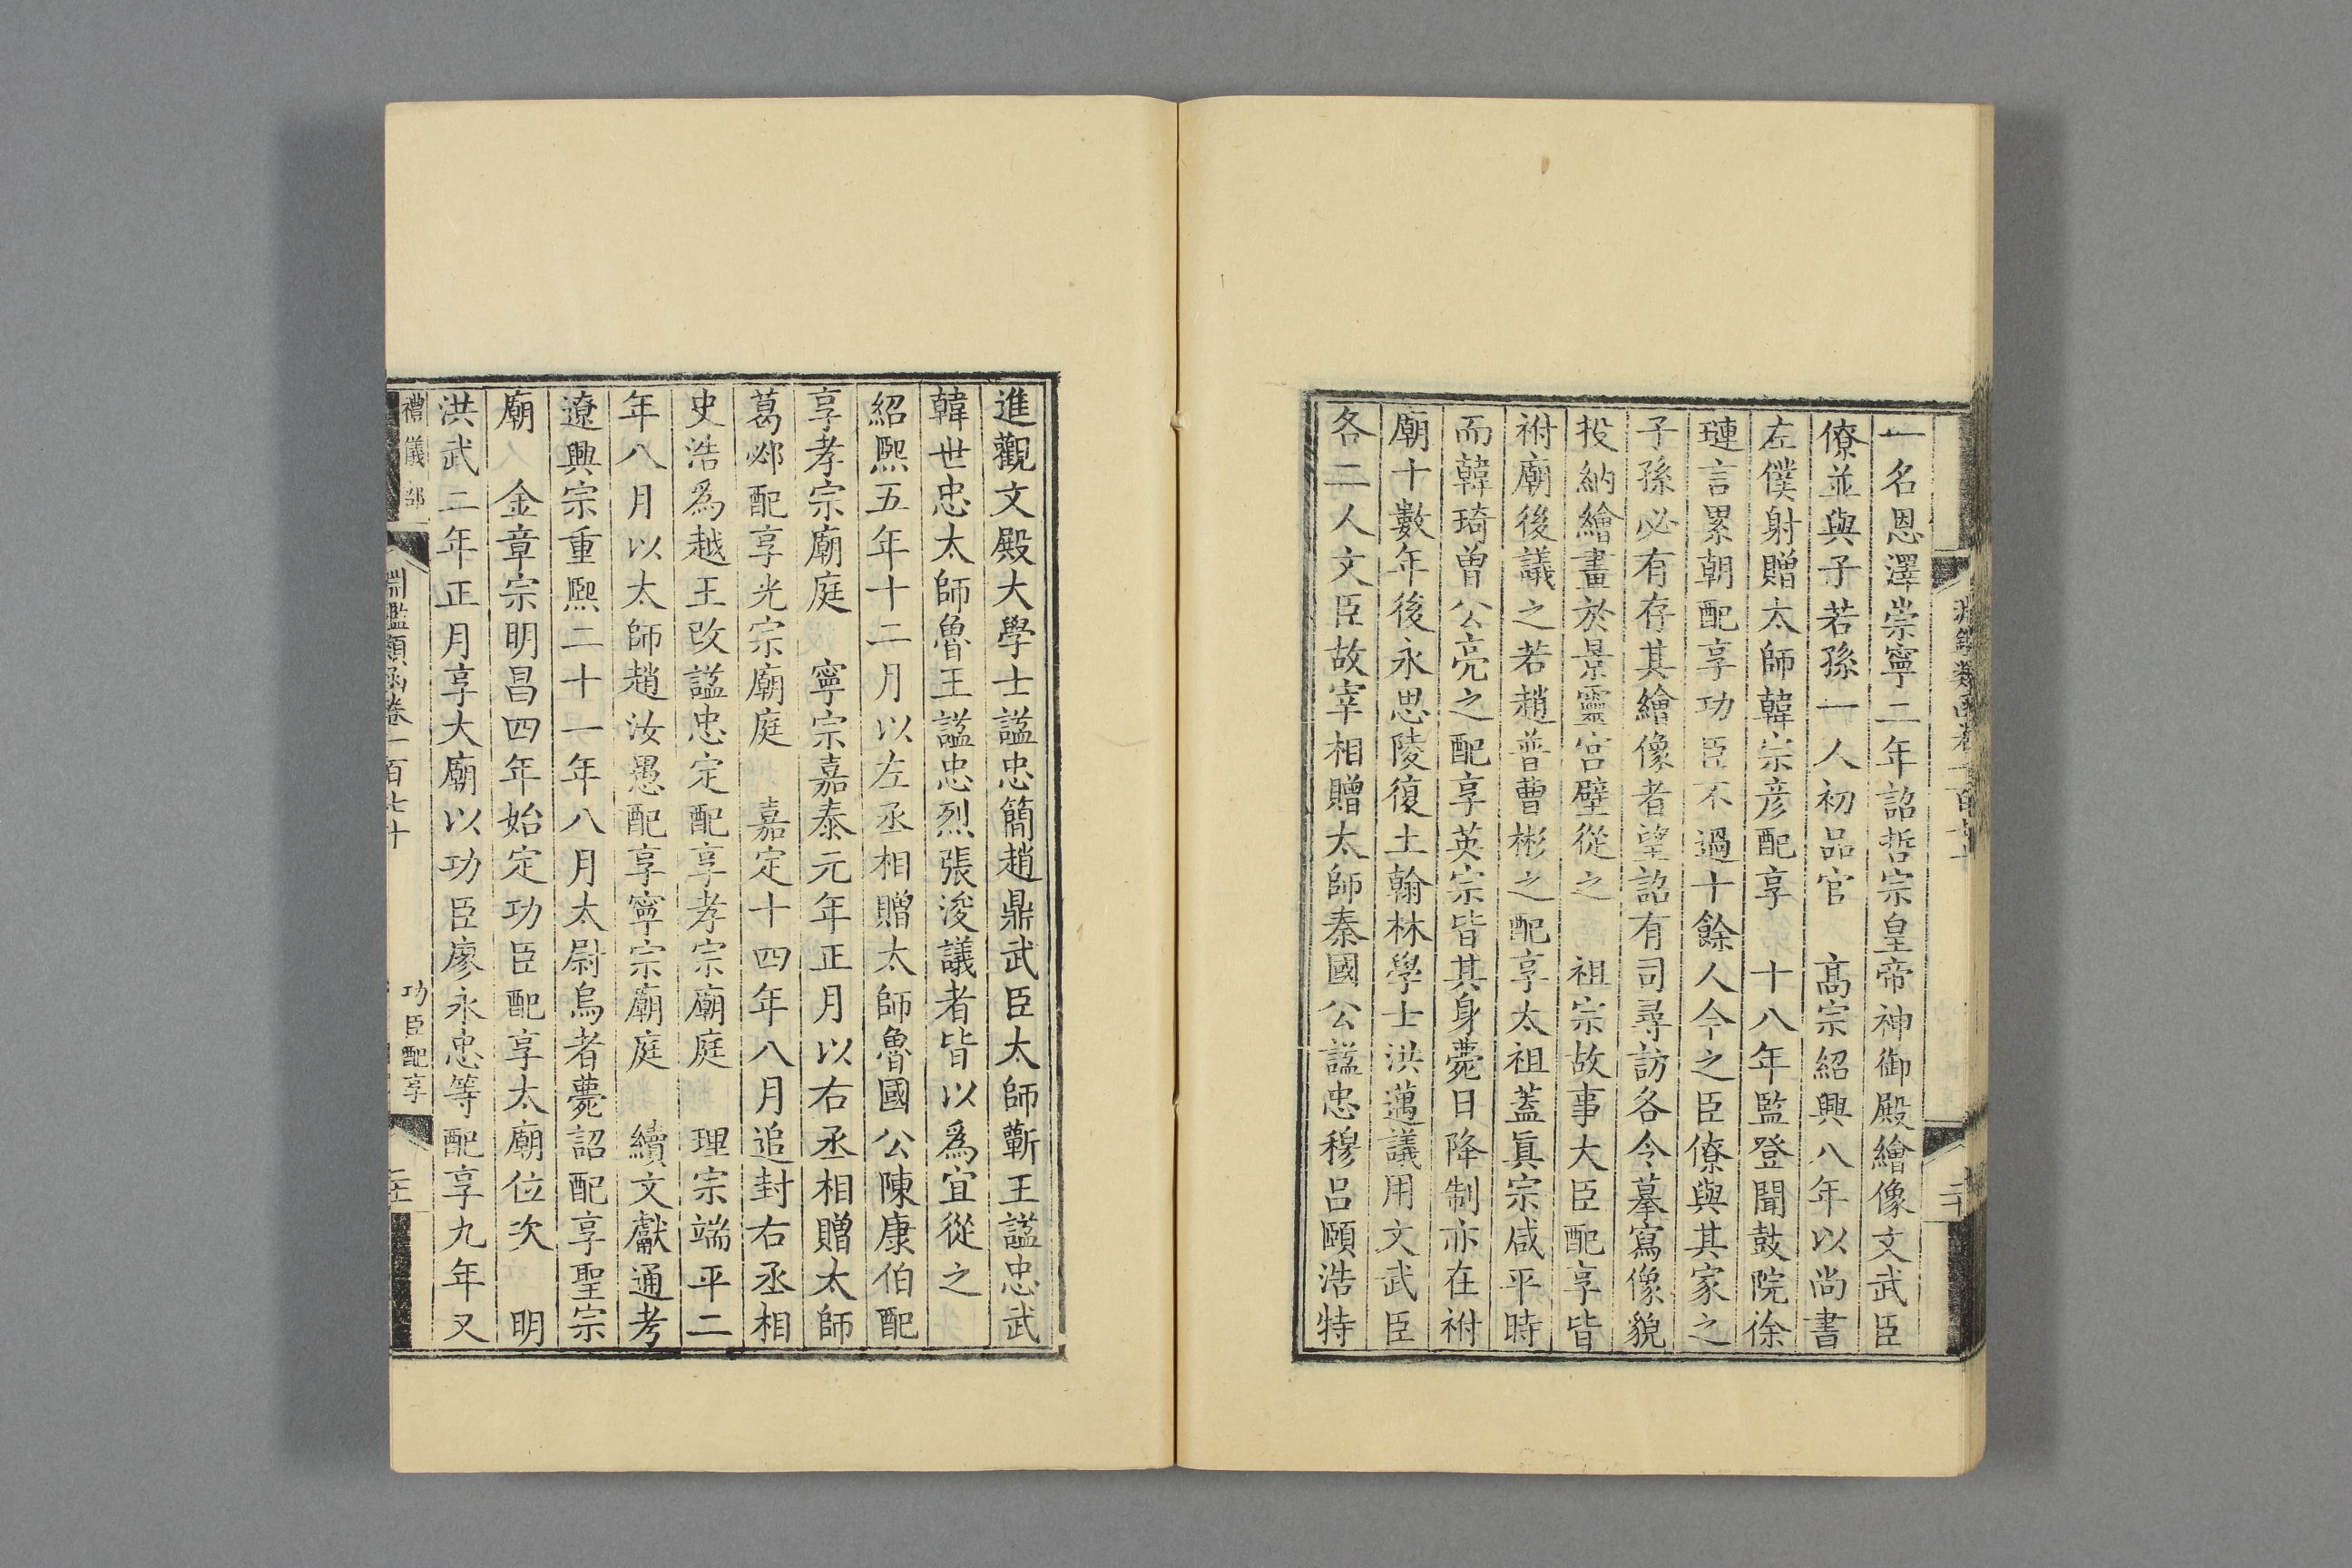 一名恩澤崇寧二年詔哲宗皇帝神御殿繪像文武臣
僚並與子若孫一人初品官　高宗紹興八年以尚書
左僕射贈太師韓宗彦配享　十八年監登聞鼓院徐
璉言累朝配享功臣不過十餘人今之臣僚與其家之
子孫必有存其繪像者望詔有司尋訪各令摹寫像貌
投納繪畫於景靈宮壁從之　祖宗故事大臣配享皆
祔廟後議之若趙普曹彬之配享太祖蓋眞宗咸平時
而韓琦曾公亮之配享英宗皆其身薨日降制亦在祔
廟十數年後永思陵復土翰林學士洪邁議用文武臣
各二人文臣故宰相贈太師秦國公諡忠穆呂頤浩特
進觀文殿大學士諡忠簡趙鼎武臣太師蘄王諡忠武
韓世忠太師魯王諡忠烈張浚議者皆以爲宜從之
紹熙五年十二月以左丞相贈太師魯國公陳康伯配
享孝宗廟庭　寧宗嘉泰元年正月以右丞相贈太師
葛邲配享光宗廟庭　嘉定十四年八月追封右丞相
史浩爲越王改諡忠定配享孝宗廟庭　理宗端平二
年八月以太師趙汝愚配享寧宗廟庭　續文獻通考
遼興宗重熙二十一年八月太尉烏者薨詔配享聖宗
廟　金章宗明昌四年始定功臣配享太廟位次　明
洪武二年正月享大廟以功臣廖永忠等配享九年又
禮儀部
淵鑑類函卷一百七十
功臣配享